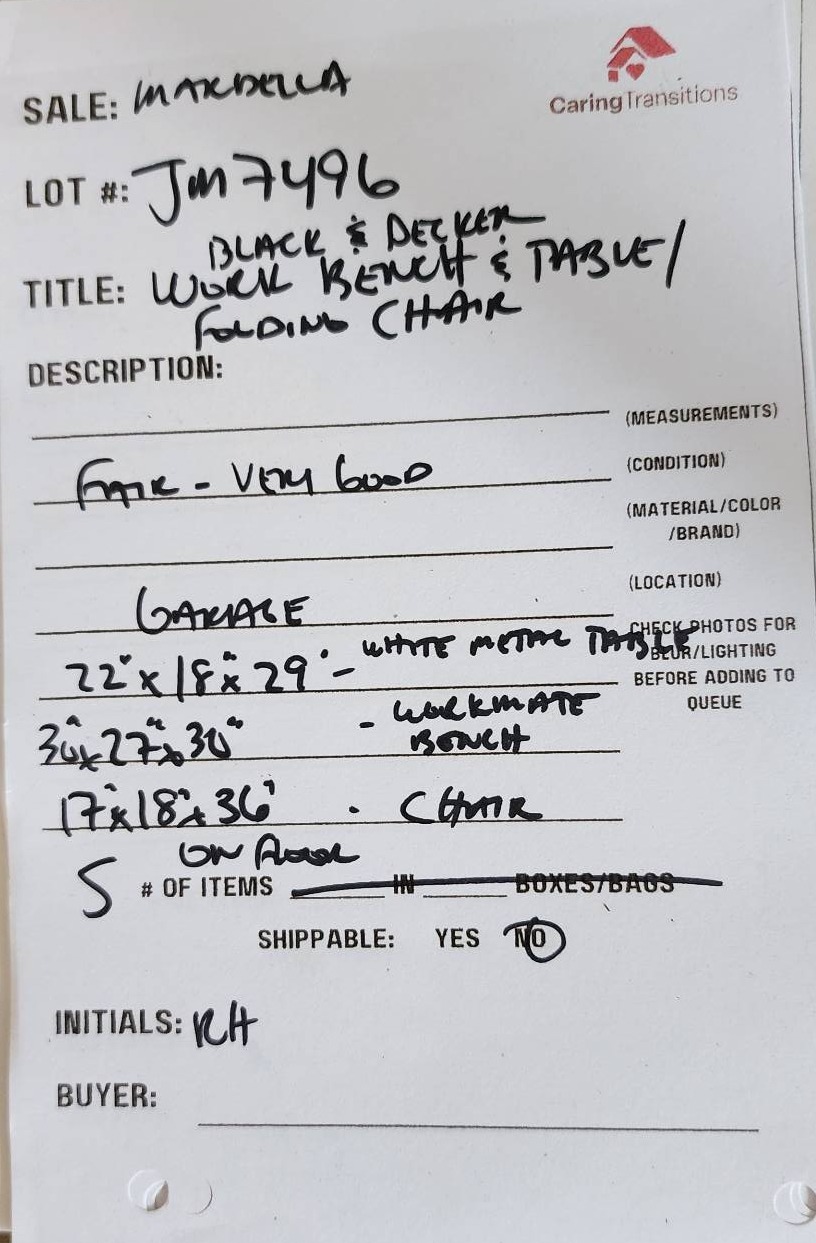 CaringTransitions
SALE: MARDELLA
LOT #: JM7496
BLACK & DECKER
TITLE: WORK BENCH & TABLE/
FOLDING CHAIR
DESCRIPTION:
(MEASUREMENTS)
FAIR - VERY GOOD (CONDITION)
(MATERIAL/COLOR
/BRAND)
GARAGE (LOCATION)
22" x 18" x 29" - WHITE METAL TABLE
CHECK PHOTOS FOR
BLUR/LIGHTING
BEFORE ADDING TO
QUEUE
30" x 27" x 30" - WORKMATE
BENCH
17" x 18" x 36" - CHAIR
ON FLOOR
5 # OF ITEMS IN BOXES/BAGS
SHIPPABLE: YES NO
INITIALS: RH
BUYER: